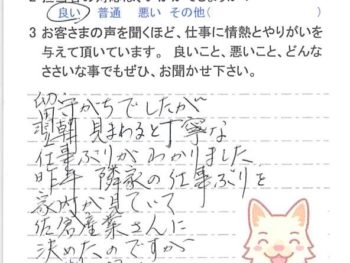 良い 普通 悪い その他( )
3 お客さまの声を聞くほど、仕事に情熱とやりがいを
与えて頂いています。 良いこと、悪いこと、どんな
ささいな事でもぜひ、お聞かせ下さい。
留守がちでしたが
翌朝 見まわると丁寧な
仕事ぶりがわかりました
昨年 隣家の仕事ぶりを
家内が見ていて
佐倉産業さんに
決めたのですが